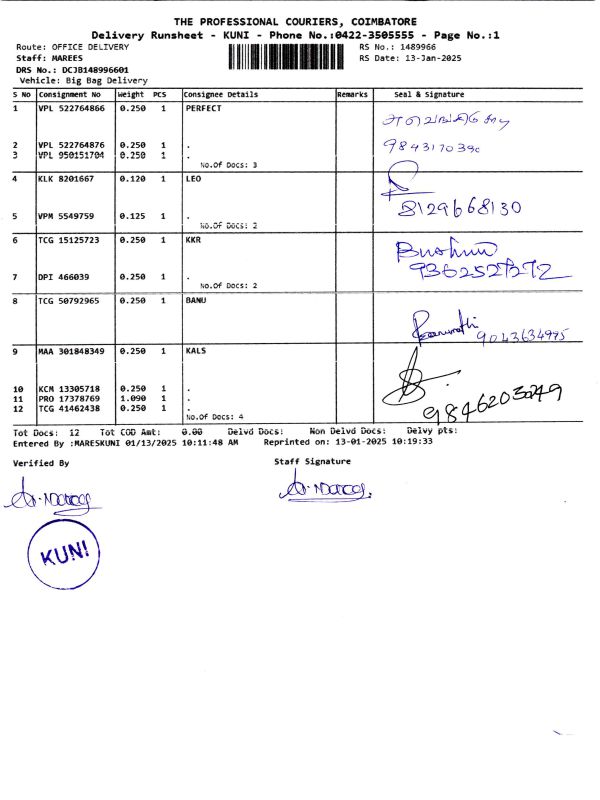 THE PROFESSIONAL COURIERS, COIMBATORE
Delivery Runsheet - KUNI - Phone No.:0422-3505555 - Page No.:1
Route: OFFICE DELIVERY RS No.: 1489966
Staff: MAREES RS Date: 13-Jan-2025
DRS No.: DCJB148996601
Vehicle: Big Bag Delivery
S No Consignment No Weight PCS Consignee Details Remarks Seal & Signature
1 VPL 522764866 0.250 1 PERFECT
2 VPL 522764876 0.250 1 .
3 VPL 950151704 0.250 1 .
No.Of Docs: 3
4 KLK 8201667 0.120 1 LEO
8129668130
5 VPM 5549759 0.125 1 .
No.Of Docs: 2
6 TCG 15125723 0.250 1 KKR
7 DPI 466039 0.250 1 .
No.Of Docs: 2
8 TCG 50792965 0.250 1 BANU
9043634995
9 MAA 301848349 0.250 1 KALS
10 KCM 13305718 0.250 1 .
11 PRO 17378769 1.090 1 .
12 TCG 41462438 0.250 1 .
9846203049
No.Of Docs: 4
Tot Docs: 12 Tot COD Amt: 0.00 Delvd Docs: Non Delvd Docs: Delvy pts:
Entered By :MARESKUNI 01/13/2025 10:11:48 AM Reprinted on: 13-01-2025 10:19:33
Verified By Staff Signature
KUNI